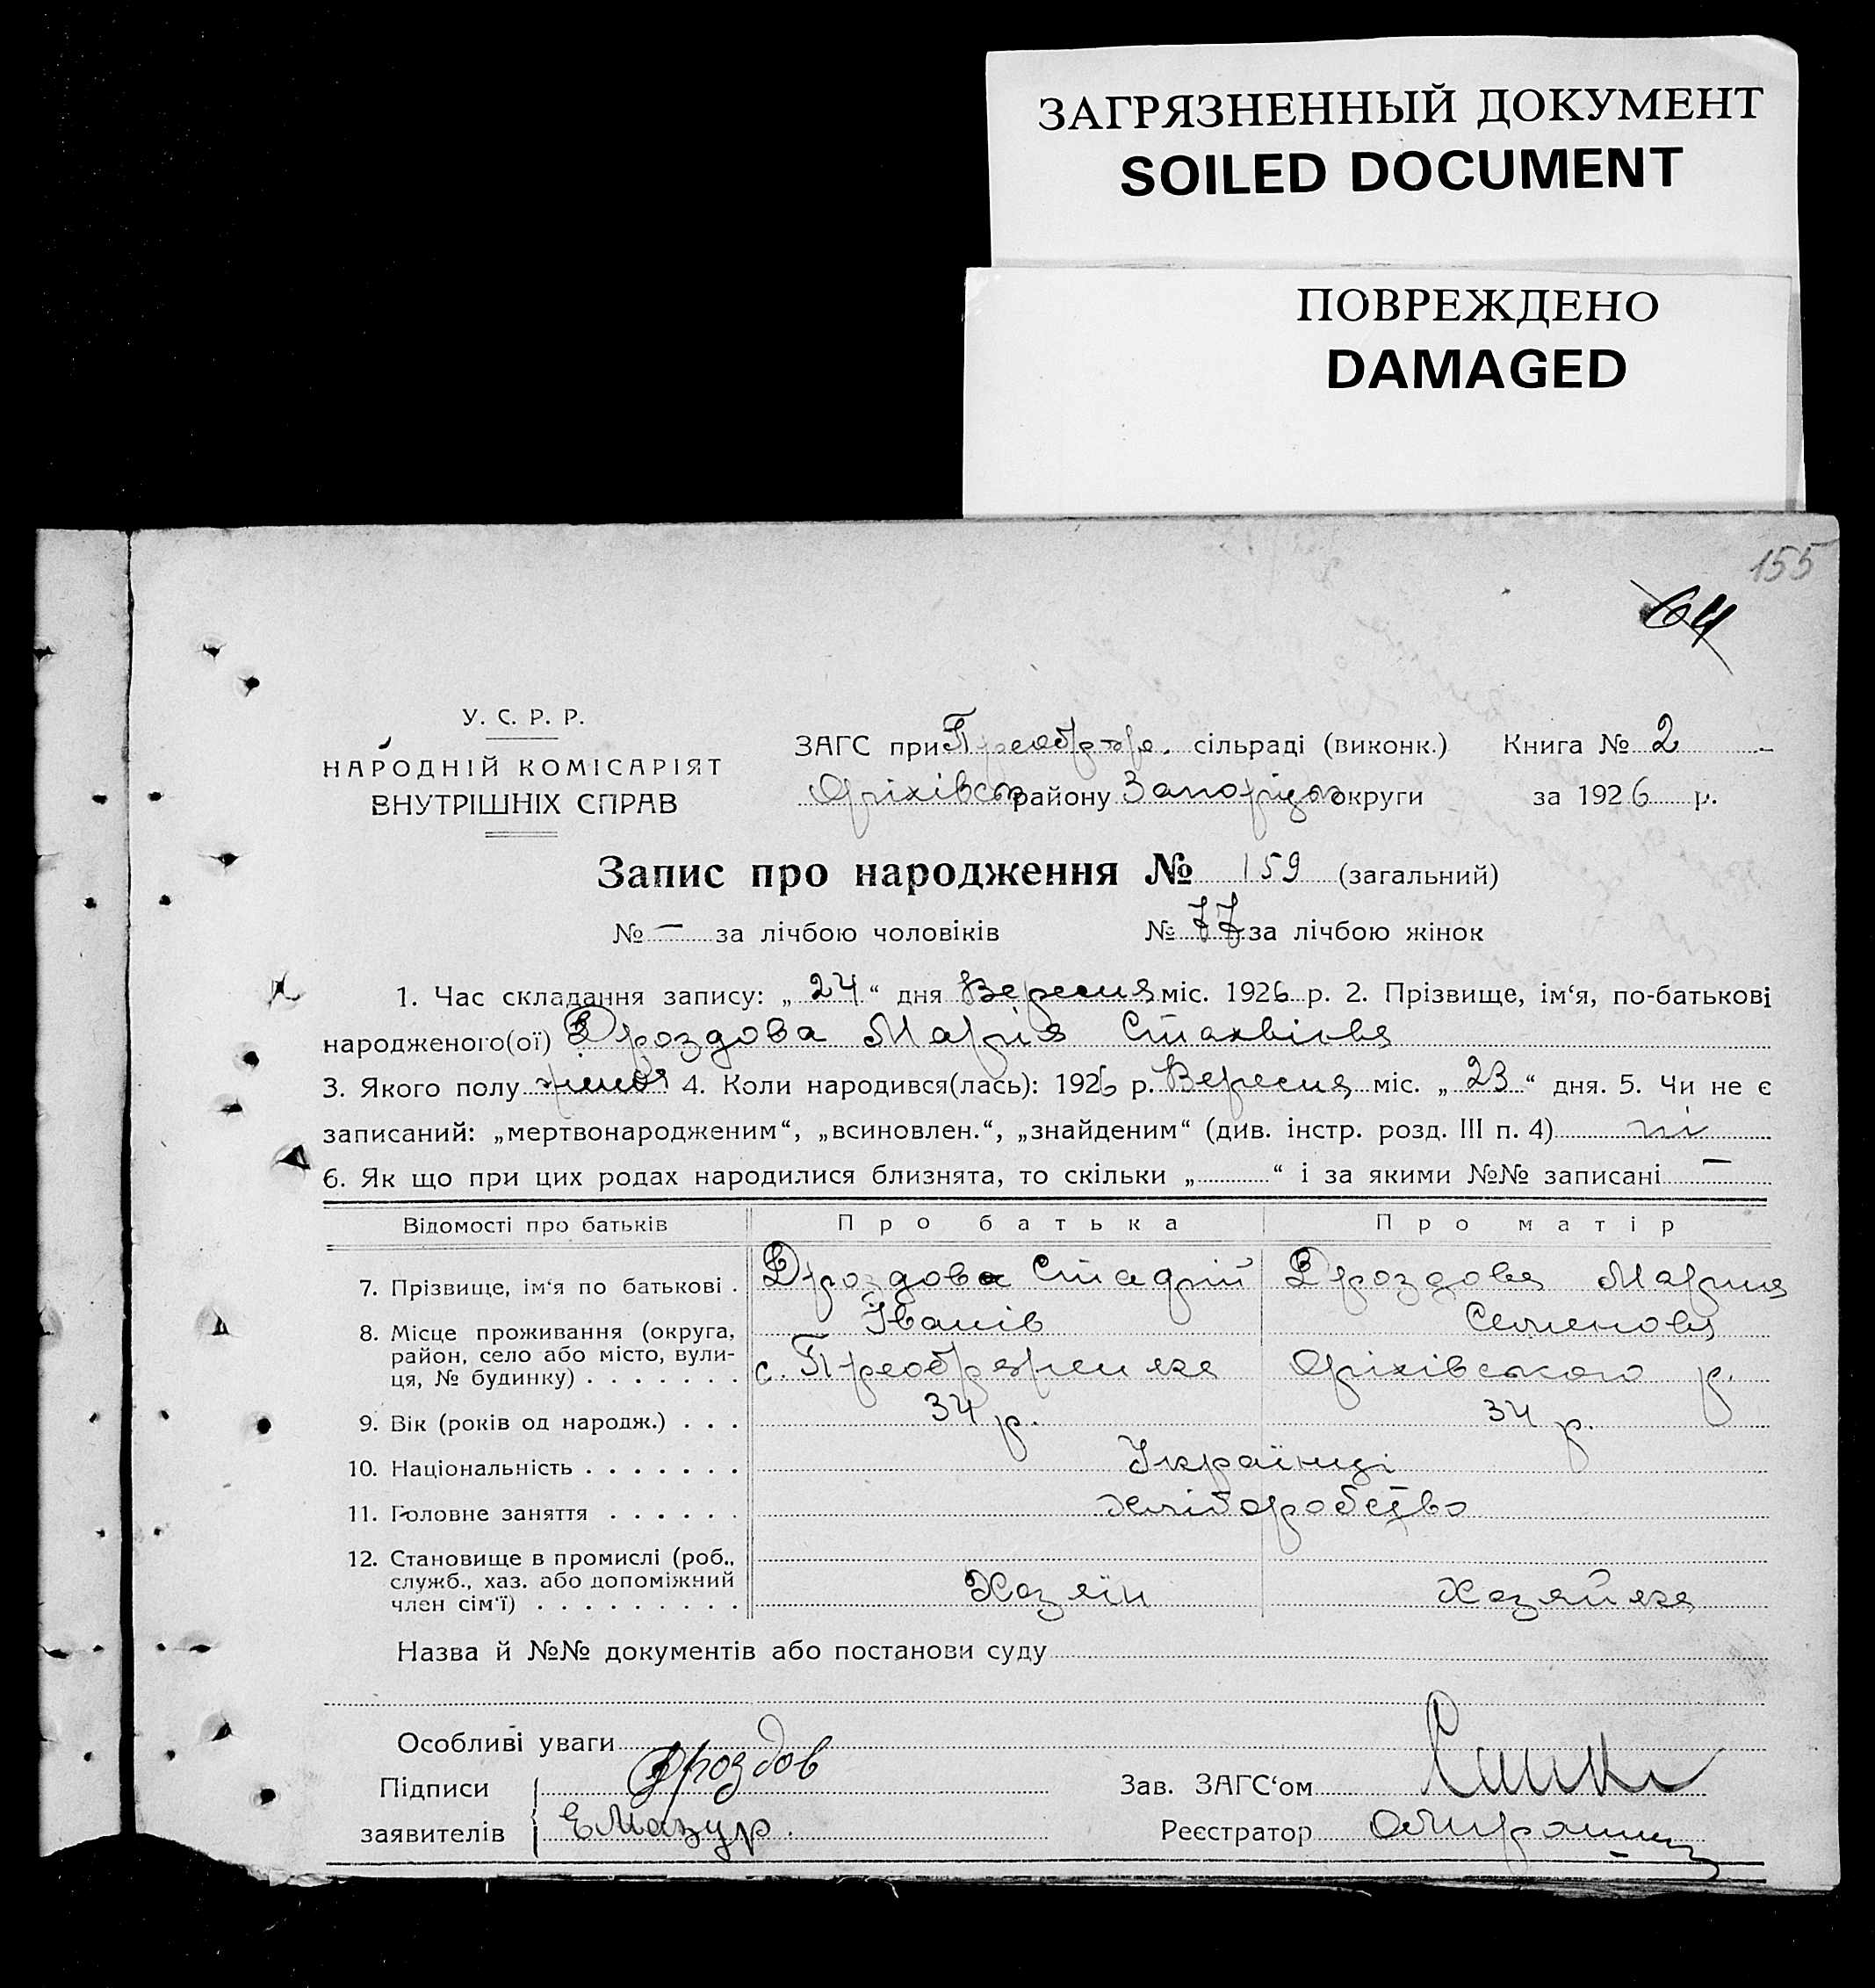 ЗАГРЯЗНЕННЫЙ ДОКУМЕНТ
SOILED DOCUMENT
ПОВРЕЖДЕНО
DAMAGED
155
64
У. С. Р. Р.
НАРОДНІЙ КОМІСАРІЯТ
ВНУТРІШНІХ СПРАВ
ЗАГС при Преображ. сільраді (виконк.) Книга № 2
Оріхівськ району Запорізьк округи за 1926 р.
Запис про народження № 159 (загальний)
№ — за лічбою чоловіків № 77 за лічбою жінок
1. Час складання запису: „ 24 “ дня Вересня міс. 1926 р. 2. Прізвище, ім‘я, по-батькові
народженого(ої) Дроздова Марія
3. Якого полу 4. Коли народився(лась): 1926 р. Вересня міс. „ 23 “ дня. 5. Чи не є
записаний: „мертвонародженим“, „всиновлен.“, „знайденим“ (див. інстр. розд. III п. 4) ні
6. Як що при цих родах народилися близнята, то скільки „ “ і за якими №№ записані —
Відомості про батьків Про батька Про матір
7. Прізвище, ім‘я по батькові . Дроздова Дроздова Мария
Іванів Семенова
8. Місце проживання (округа,
район, село або місто, вули-
ця, № будинку) . . . . . . . с. Преображенка Оріхівського р.
9. Вік (років од народж.) . . . 34 р. 34 р.
10. Національність . . . . . . . Українці
11. Головне заняття . . . . . . Хліборобство
12. Становище в промислі (роб.,
служб., хаз. або допоміжний
член сім‘ї) . . . . . . . . . Хазяїн Хазяйка
Назва й №№ документів або постанови суду
Особливі уваги
Підписи Дроздов Зав. ЗАГС‘ом
заявителів ЕМазур. Реєстратор